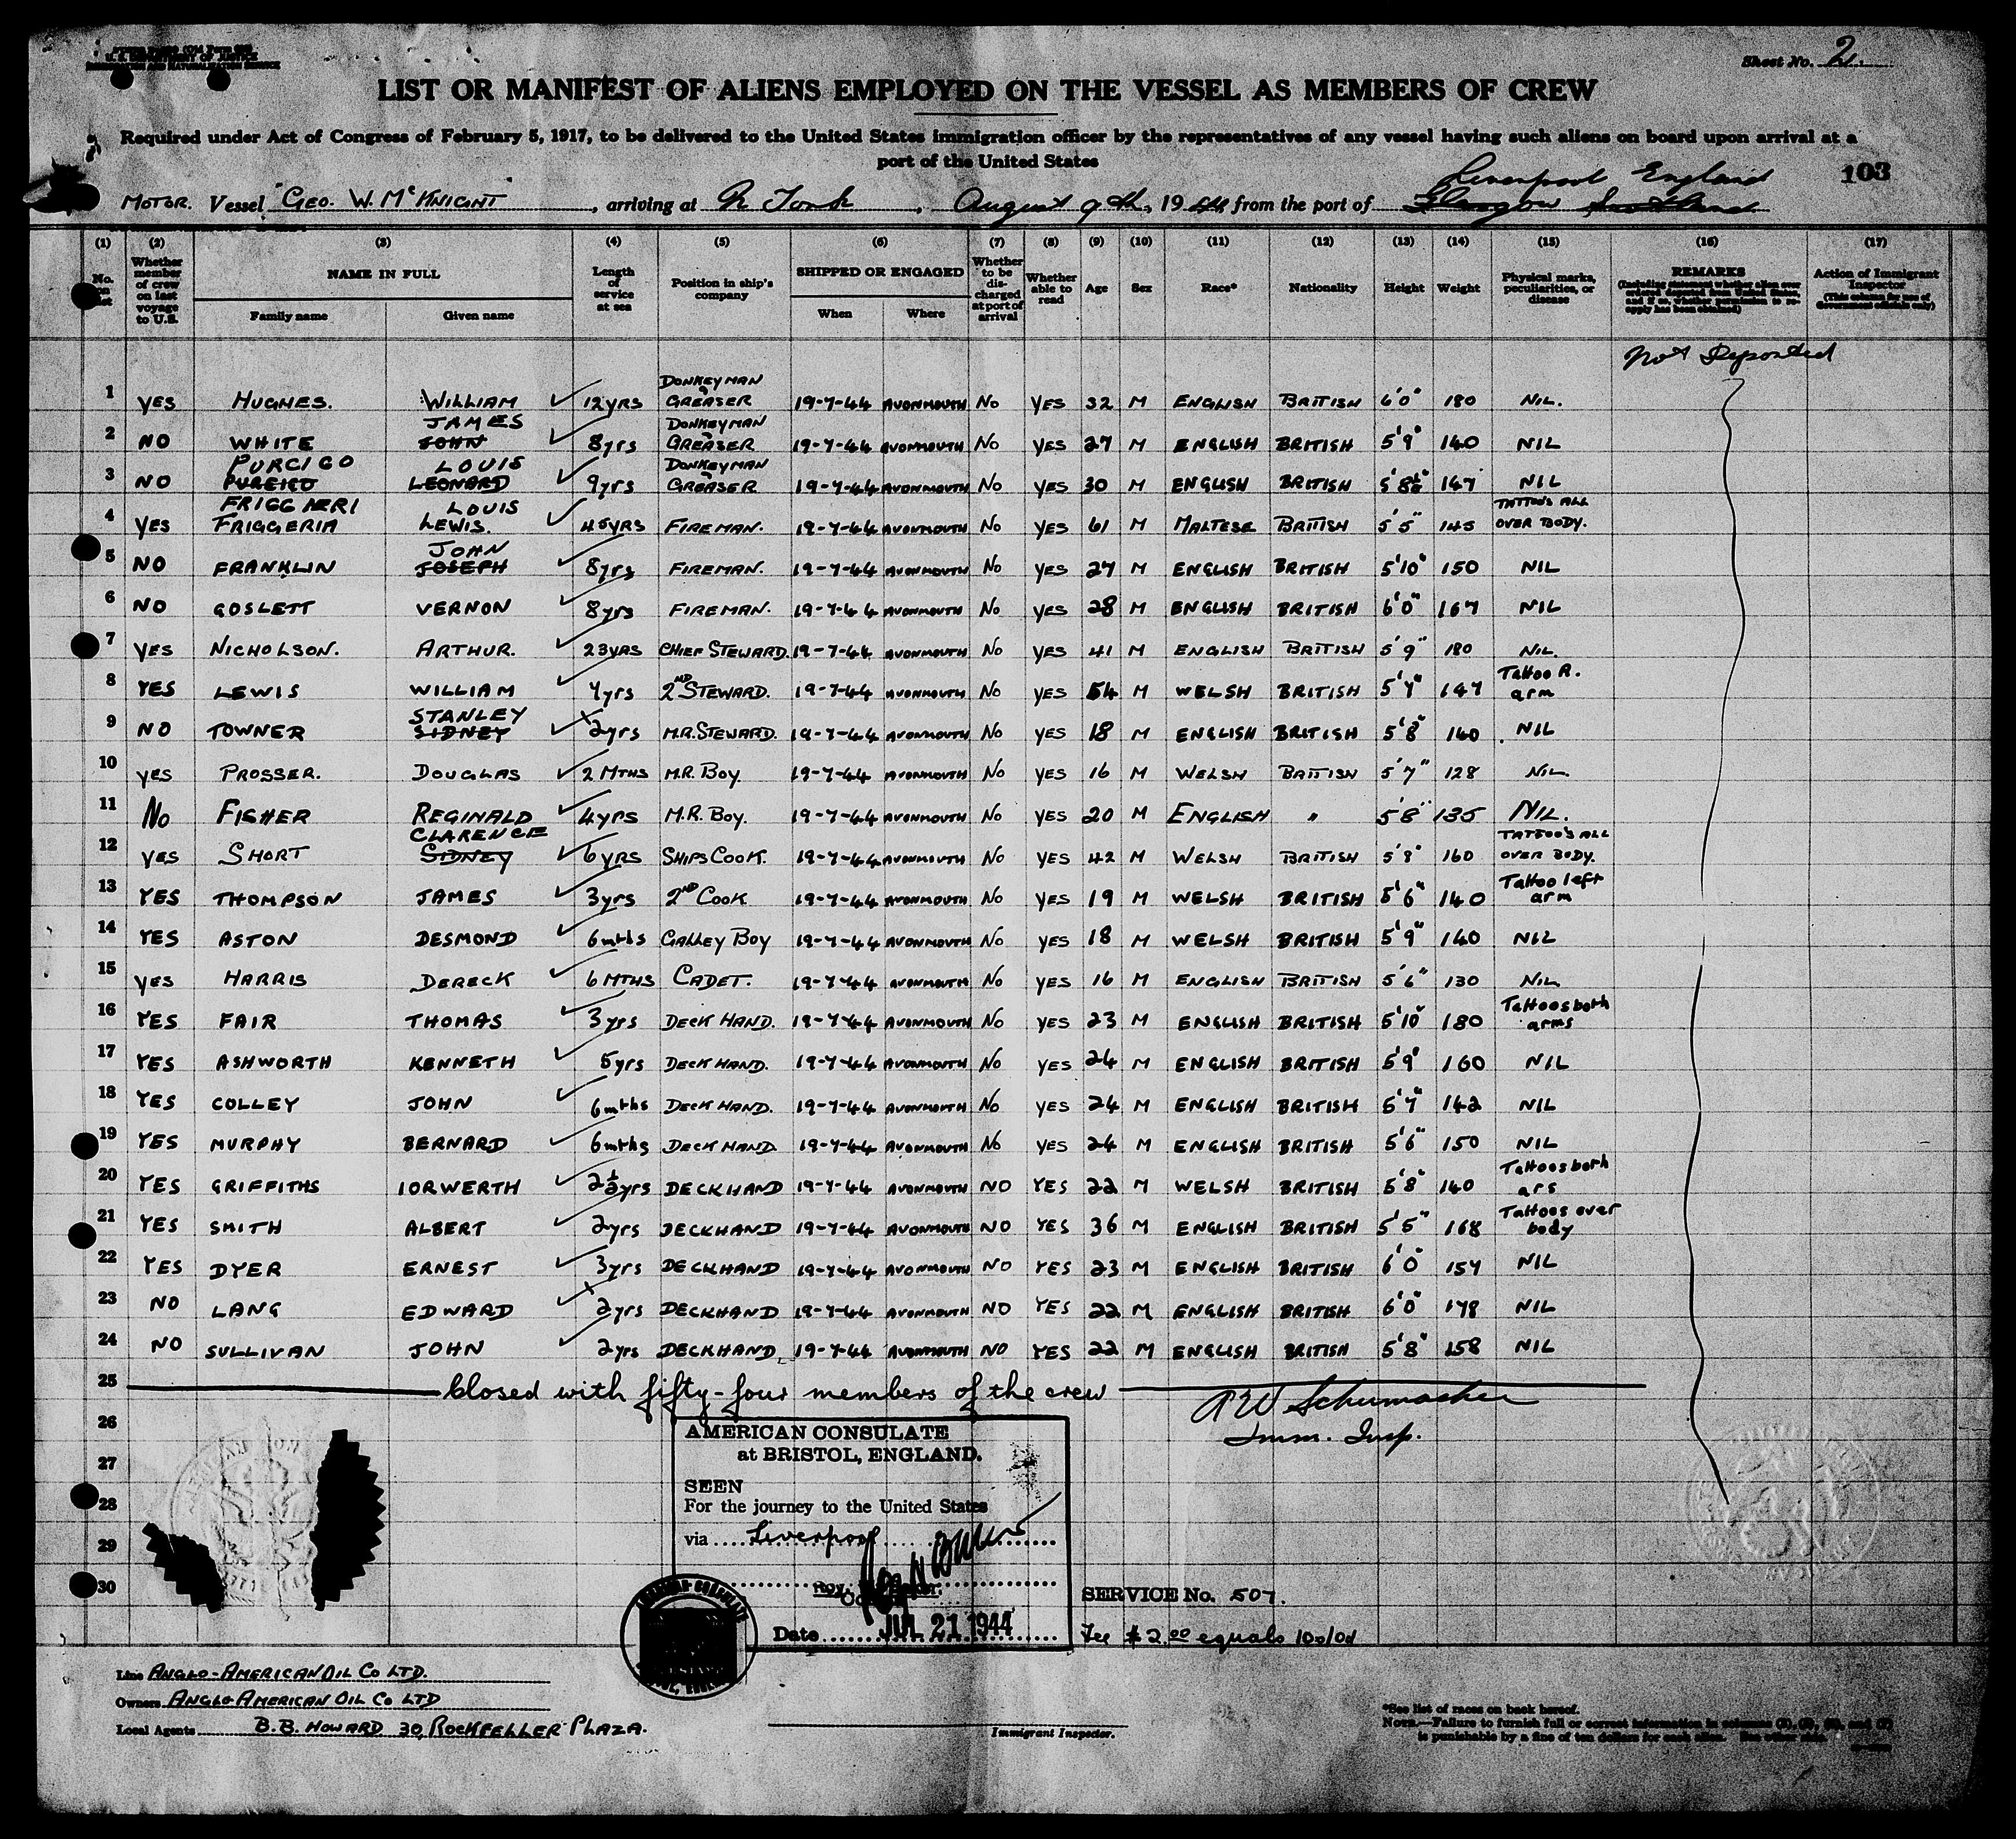 U. S. DEPARTMENT OF JUSTICE
IMMIGRATION AND NATURALIZATION SERVICE
Sheet No. 2.
LIST OR MANIFEST OF ALIENS EMPLOYED ON THE VESSEL AS MEMBERS OF CREW
Required under Act of Congress of February 5, 1917, to be delivered to the United States immigration officer by the representatives of any vessel having such aliens on board upon arrival at a
port of the United States
103
Liverpool England
MOTOR. Vessel "GEO. W. McKNIGHT, arriving at N York, August 9th, 1944, from the port of Glasgow Scotland
(1) (2) (3) (4) (5) (6) (7) (8) (9) (10) (11) (12) (13) (14) (15) (16) (17)
No. on list Whether member of crew on last voyage to U.S. NAME IN FULL Family name Given name Length of service at sea Position in ship's company SHIPPED OR ENGAGED When Where Whether to be discharged at port of arrival Whether able to read Age Sex Race* Nationality Height Weight Physical marks, peculiarities, or disease REMARKS (Including statement whether alien ever ordered deported from United States, and if so, whether permission to reapply has been obtained) Action of Immigrant Inspector (This column for use of Government officials only)
Not Deported
1 YES HUGHES. WILLIAM 12YRS DONKEYMAN GREASER 19-7-44 AVONMOUTH No YES 32 M ENGLISH BRITISH 6'0" 180 NIL.
2 NO WHITE JAMES JOHN 8yrs DONKEYMAN GREASER 19-7-44 AVONMOUTH No YES 27 M ENGLISH BRITISH 5'9" 140 NIL
3 NO PURCIGO PUREIGO LOUIS LEONARD 9yrs DONKEYMAN GREASER 19-7-44 AVONMOUTH No YES 30 M ENGLISH BRITISH 5'8½" 147 NIL
4 YES FRIGGIERI FRIGGERIA LOUIS LEWIS. 45YRS FIREMAN. 19-7-44 AVONMOUTH No YES 61 M MALTESE BRITISH 5'5" 145 TATTOO'S ALL OVER BODY.
5 NO FRANKLIN JOHN JOSEPH 8yrs FIREMAN. 19-7-44 AVONMOUTH No YES 27 M ENGLISH BRITISH 5'10" 150 NIL
6 NO GOSLETT VERNON 8yrs FIREMAN. 19-7-44 AVONMOUTH No YES 28 M ENGLISH BRITISH 6'0" 167 NIL
7 YES NICHOLSON. ARTHUR. 23YRS CHIEF STEWARD. 19-7-44 AVONMOUTH No YES 41 M ENGLISH BRITISH 5'9" 180 NIL.
8 YES LEWIS WILLIAM 4yrs 2ND STEWARD. 19-7-44 AVONMOUTH No YES 54 M WELSH BRITISH 5'7" 147 Tattoo R. arm
9 NO TOWNER STANLEY SIDNEY 2yrs M.R. STEWARD. 19-7-44 AVONMOUTH No YES 18 M ENGLISH BRITISH 5'8" 140 NIL
10 YES PROSSER. DOUGLAS 2 MTHS M.R. BOY. 19-7-44 AVONMOUTH No YES 16 M WELSH BRITISH 5'7" 128 NIL.
11 No FISHER REGINALD 4yrs M.R. BOY. 19-7-44 AVONMOUTH No YES 20 M ENGLISH " 5'8" 135 NIL.
12 YES SHORT CLARENCE SIDNEY 6YRS SHIPS COOK. 19-7-44 AVONMOUTH No YES 42 M WELSH BRITISH 5'8" 160 TATTOO'S ALL OVER BODY.
13 YES THOMPSON JAMES 3yrs 2ND COOK 19-7-44 AVONMOUTH No YES 19 M WELSH BRITISH 5'6" 140 Tattoo left arm
14 YES ASTON DESMOND 6mths GALLEY BOY 19-7-44 AVONMOUTH No YES 18 M WELSH BRITISH 5'9" 140 NIL
15 YES HARRIS DERECK 6 MTHS CADET. 19-7-44 AVONMOUTH No YES 16 M ENGLISH BRITISH 5'6" 130 NIL
16 YES FAIR THOMAS 3yrs DECK HAND. 19-7-44 AVONMOUTH No YES 23 M ENGLISH BRITISH 5'10" 180 Tattoos both arms
17 YES ASHWORTH KENNETH 5yrs DECK HAND. 19-7-44 AVONMOUTH No YES 24 M ENGLISH BRITISH 5'9" 160 NIL
18 YES COLLEY JOHN 6mths DECK HAND. 19-7-44 AVONMOUTH No YES 24 M ENGLISH BRITISH 5'7" 142 NIL
19 YES MURPHY BERNARD 6mths DECK HAND. 19-7-44 AVONMOUTH No YES 24 M ENGLISH BRITISH 5'6" 150 NIL
20 YES GRIFFITHS IORWERTH 2½yrs DECKHAND 19-7-44 AVONMOUTH NO YES 22 M WELSH BRITISH 5'8" 140 Tattoos both ars
21 YES SMITH ALBERT 2yrs DECKHAND 19-7-44 AVONMOUTH NO YES 36 M ENGLISH BRITISH 5'5" 168 Tattoos over body
22 YES DYER ERNEST 3yrs DECKHAND 19-7-44 AVONMOUTH NO YES 23 M ENGLISH BRITISH 6'0" 157 NIL
23 NO LANG EDWARD 2yrs DECKHAND 19-7-44 AVONMOUTH NO YES 22 M ENGLISH BRITISH 6'0" 178 NIL
24 NO SULLIVAN JOHN 2yrs DECKHAND 19-7-44 AVONMOUTH NO YES 22 M ENGLISH BRITISH 5'8" 158 NIL
25 Closed with fifty-four members of the crew
A W Schumacher
Imm. Insp.
26
27
28
29
30
AMERICAN CONSULATE
at BRISTOL, ENGLAND.
SEEN
For the journey to the United States
via Liverpool
Date JUL 21 1944
SERVICE No. 507.
Fee $2.00 equals 10s/0d
Line ANGLO-AMERICAN OIL Co LTD.
Owners ANGLO AMERICAN OIL Co LTD
Local Agents B.B. HOWARD 30, ROCKFELLER PLAZA.
Immigrant Inspector.
*See list of races on back hereof.
NOTE.—Failure to furnish full or correct information in columns
is punishable by a fine of ten dollars for each alien. See other side.